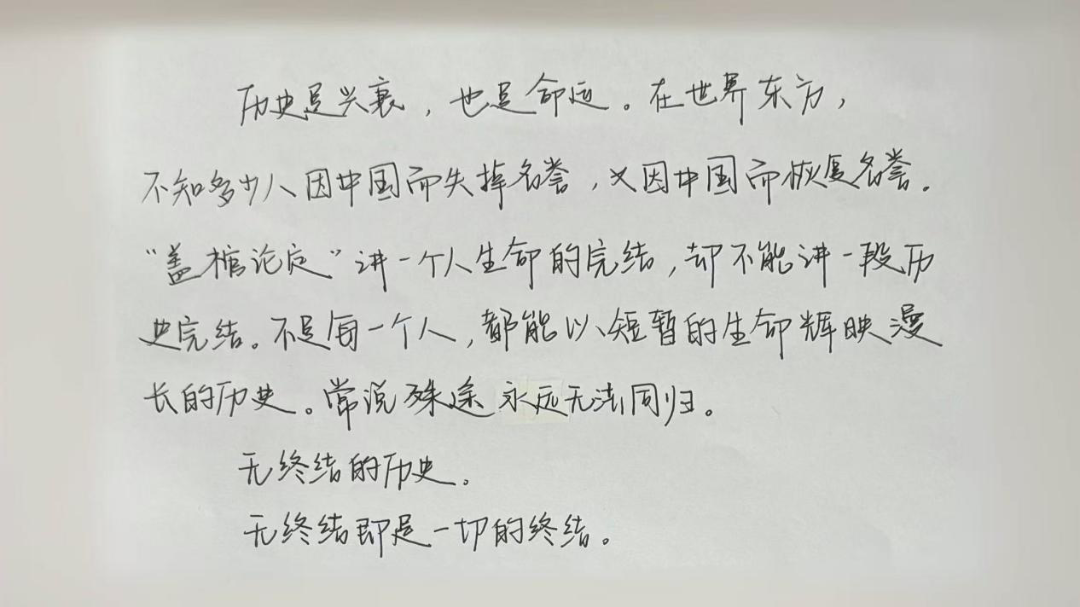 历史是兴衰，也是命运。在世界东方，
不知多少人因中国而失掉名誉，又因中国而恢复名誉。
“盖棺论定”讲一个人生命的完结，却不能讲一段历
史完结。不是每一个人，都能以短暂的生命辉映漫
长的历史。常说殊途永远无法同归。
无终结的历史。
无终结即是一切的终结。